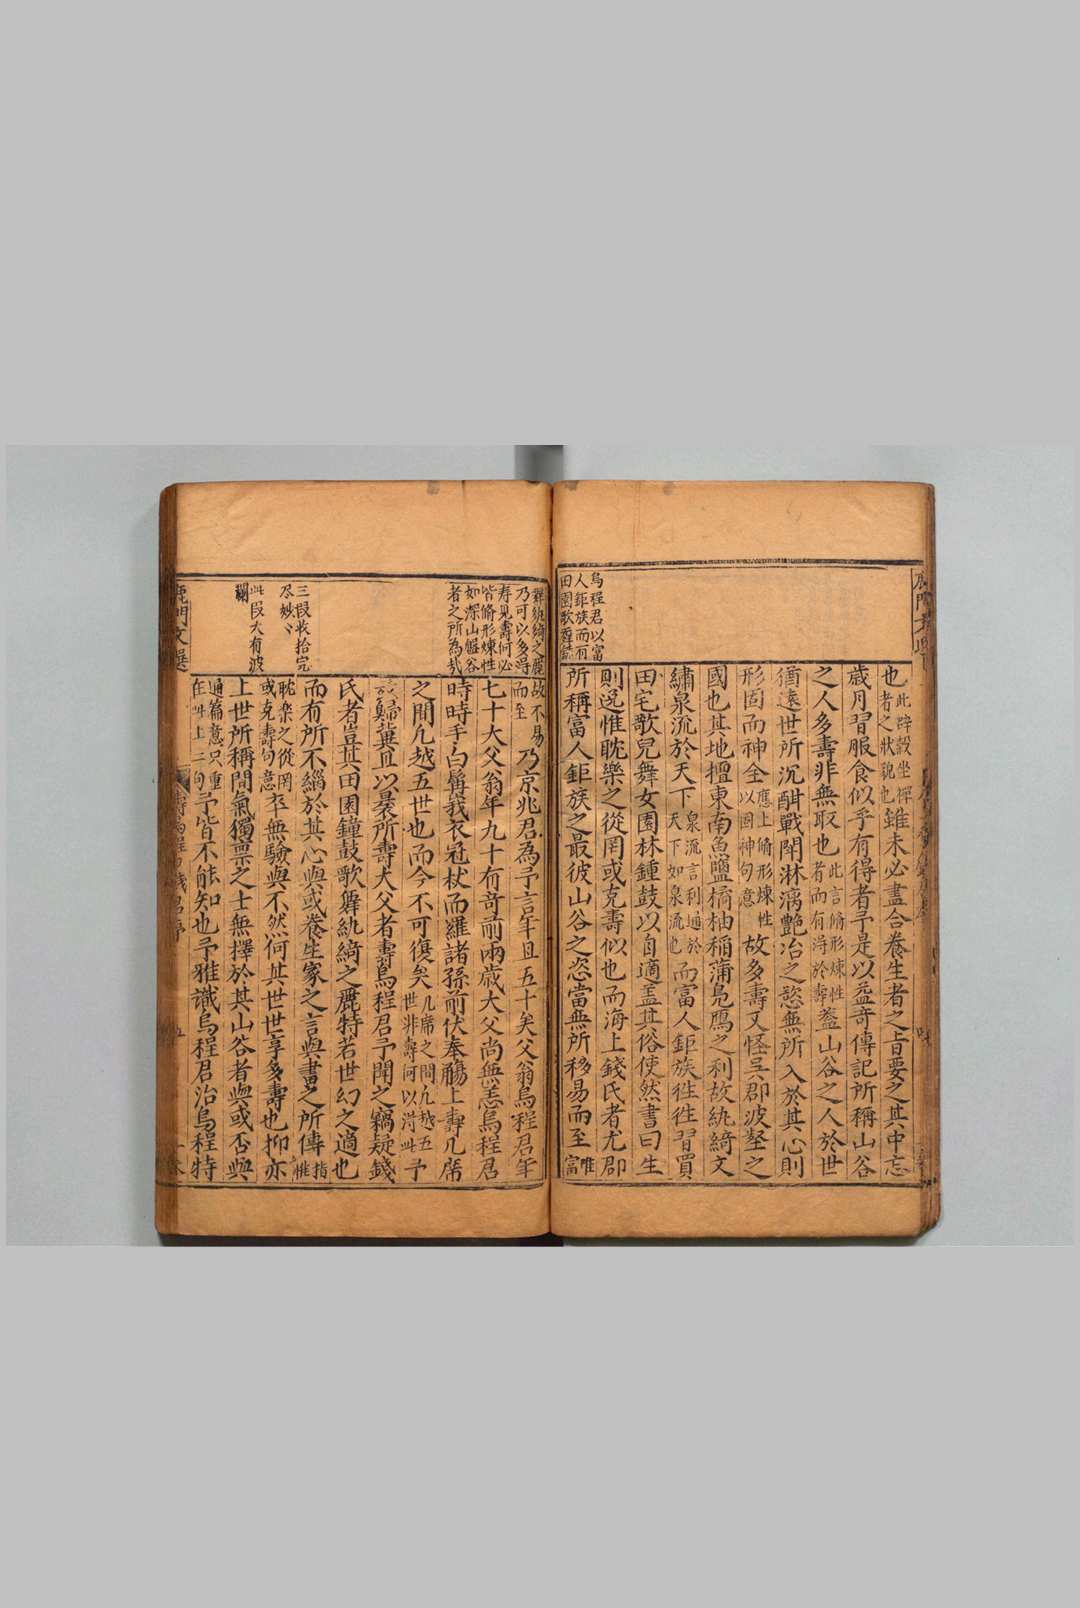 烏程君以富
人鉅族而有
田園歌舞
也此辟設坐禪者之狀貌也雖未必盡合養生者之旨要之其中忘
歲月習服食似乎有得者予是以益奇傳記所稱山谷
之人多壽非無取也此言脩形煉性者而有淂於壽葢山谷之人於世
猶遠世所沉酣戰鬭淋漓艷冶之慾無所入於其心則
形固而神全應上脩形煉性以固神句意故多壽又怪吳郡波壑之
國也其地擅東南魚鹽橘柚稲蒲鳧鴈之利故紈綺文
繡泉流於天下泉流言利通於天下如泉流也而富人鉅族徃徃習買
田宅歌兒舞女園林鍾鼓以自適盖其俗使然書曰生
則逸惟耽樂之從罔或克壽似也而海上錢氏者尤郡
所稱富人鉅族之最彼山谷之恣當無所移易而至惟富
舞紈綺之麗
乃可以多得
寿見壽何必
皆脩形煉性
如深山盤谷
者之所為㢤
三段收拾完
尽妙〻
此段大有波
瀾
故不易而至乃京兆君為予言年且五十矣父翁烏程君年
七十大父翁年九十有竒前兩歲大父尚無恙烏程君
時時手白鬚峩衣冠杖而羅諸孫前伏奉觴上壽几席
之間凡越五世也而今不可復矣几席之間凡越五世非壽何以淂此予
氏者豈其田園鐘鼓歌舞紈綺之麗特若世幻之適也
而有所不緇於其心與或養生家之言與畫之所傳指惟
耽樂之從罔或克壽句意卒無驗與不然何其世世享多壽也抑亦
上世所稱間氣獨禀之士無擇於其山谷者與或否與
通篇意只重在此上二句予皆不能知也予雅識烏程君治烏程特
鹿門文選